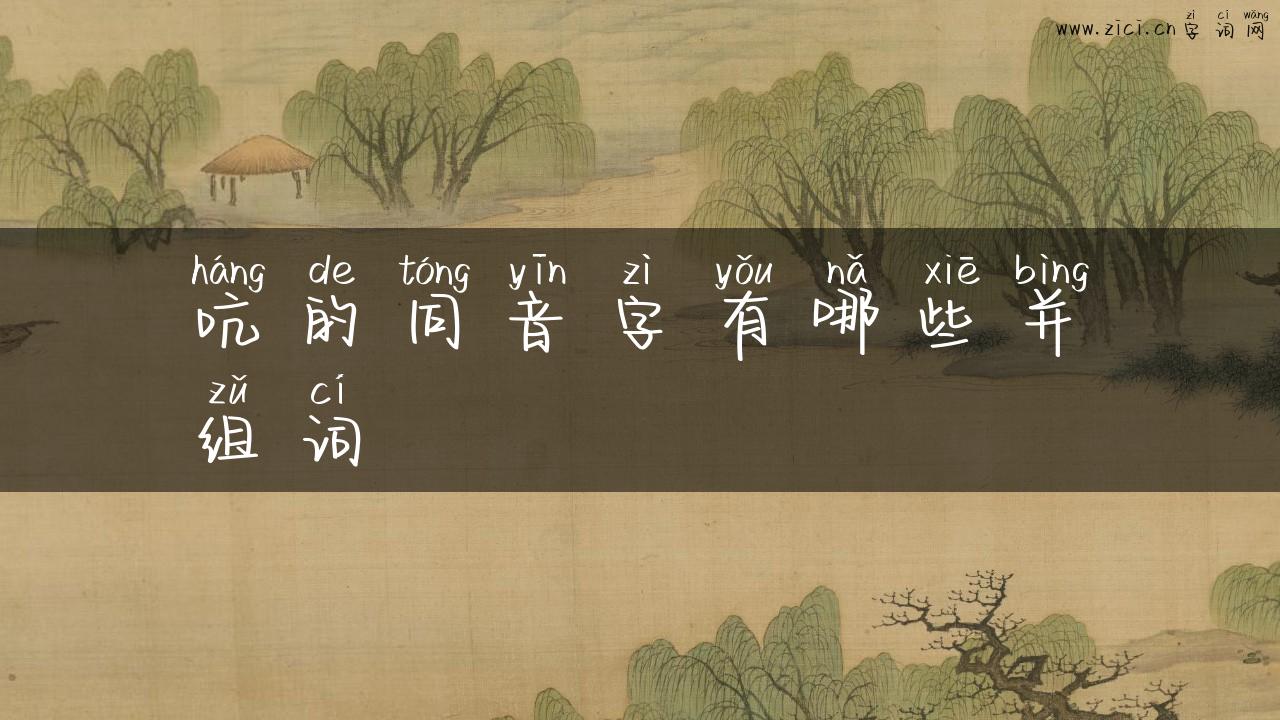 zì cí wǎng
www.zici.cn字词网
háng de tóng yīn zì yǒu nǎ xiē bìng
吭的同音字有哪些并
zǔ cí
组词